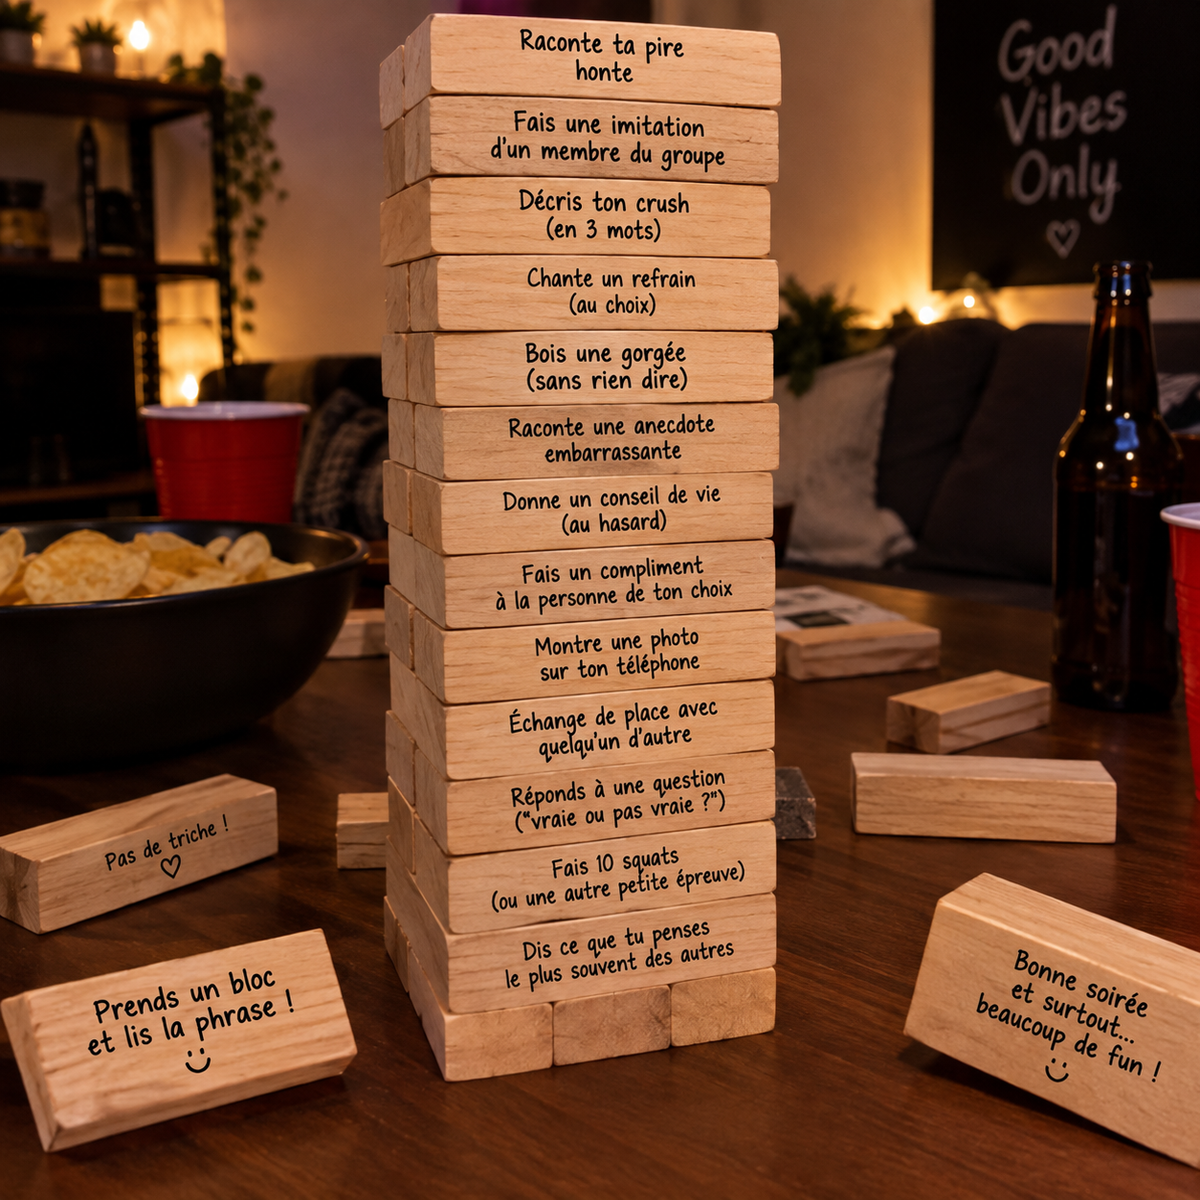 Good
Vibes
Only
Raconte ta pire
honte
Fais une imitation
d'un membre du groupe
Décris ton crush
(en 3 mots)
Chante un refrain
(au choix)
Bois une gorgée
(sans rien dire)
Raconte une anecdote
embarrassante
Donne un conseil de vie
(au hasard)
Fais un compliment
à la personne de ton choix
Montre une photo
sur ton téléphone
Échange de place avec
quelqu'un d'autre
Réponds à une question
("vraie ou pas vraie ?")
Fais 10 squats
(ou une autre petite épreuve)
Dis ce que tu penses
le plus souvent des autres
Pas de triche !
Prends un bloc
et lis la phrase !
Bonne soirée
et surtout...
beaucoup de fun !